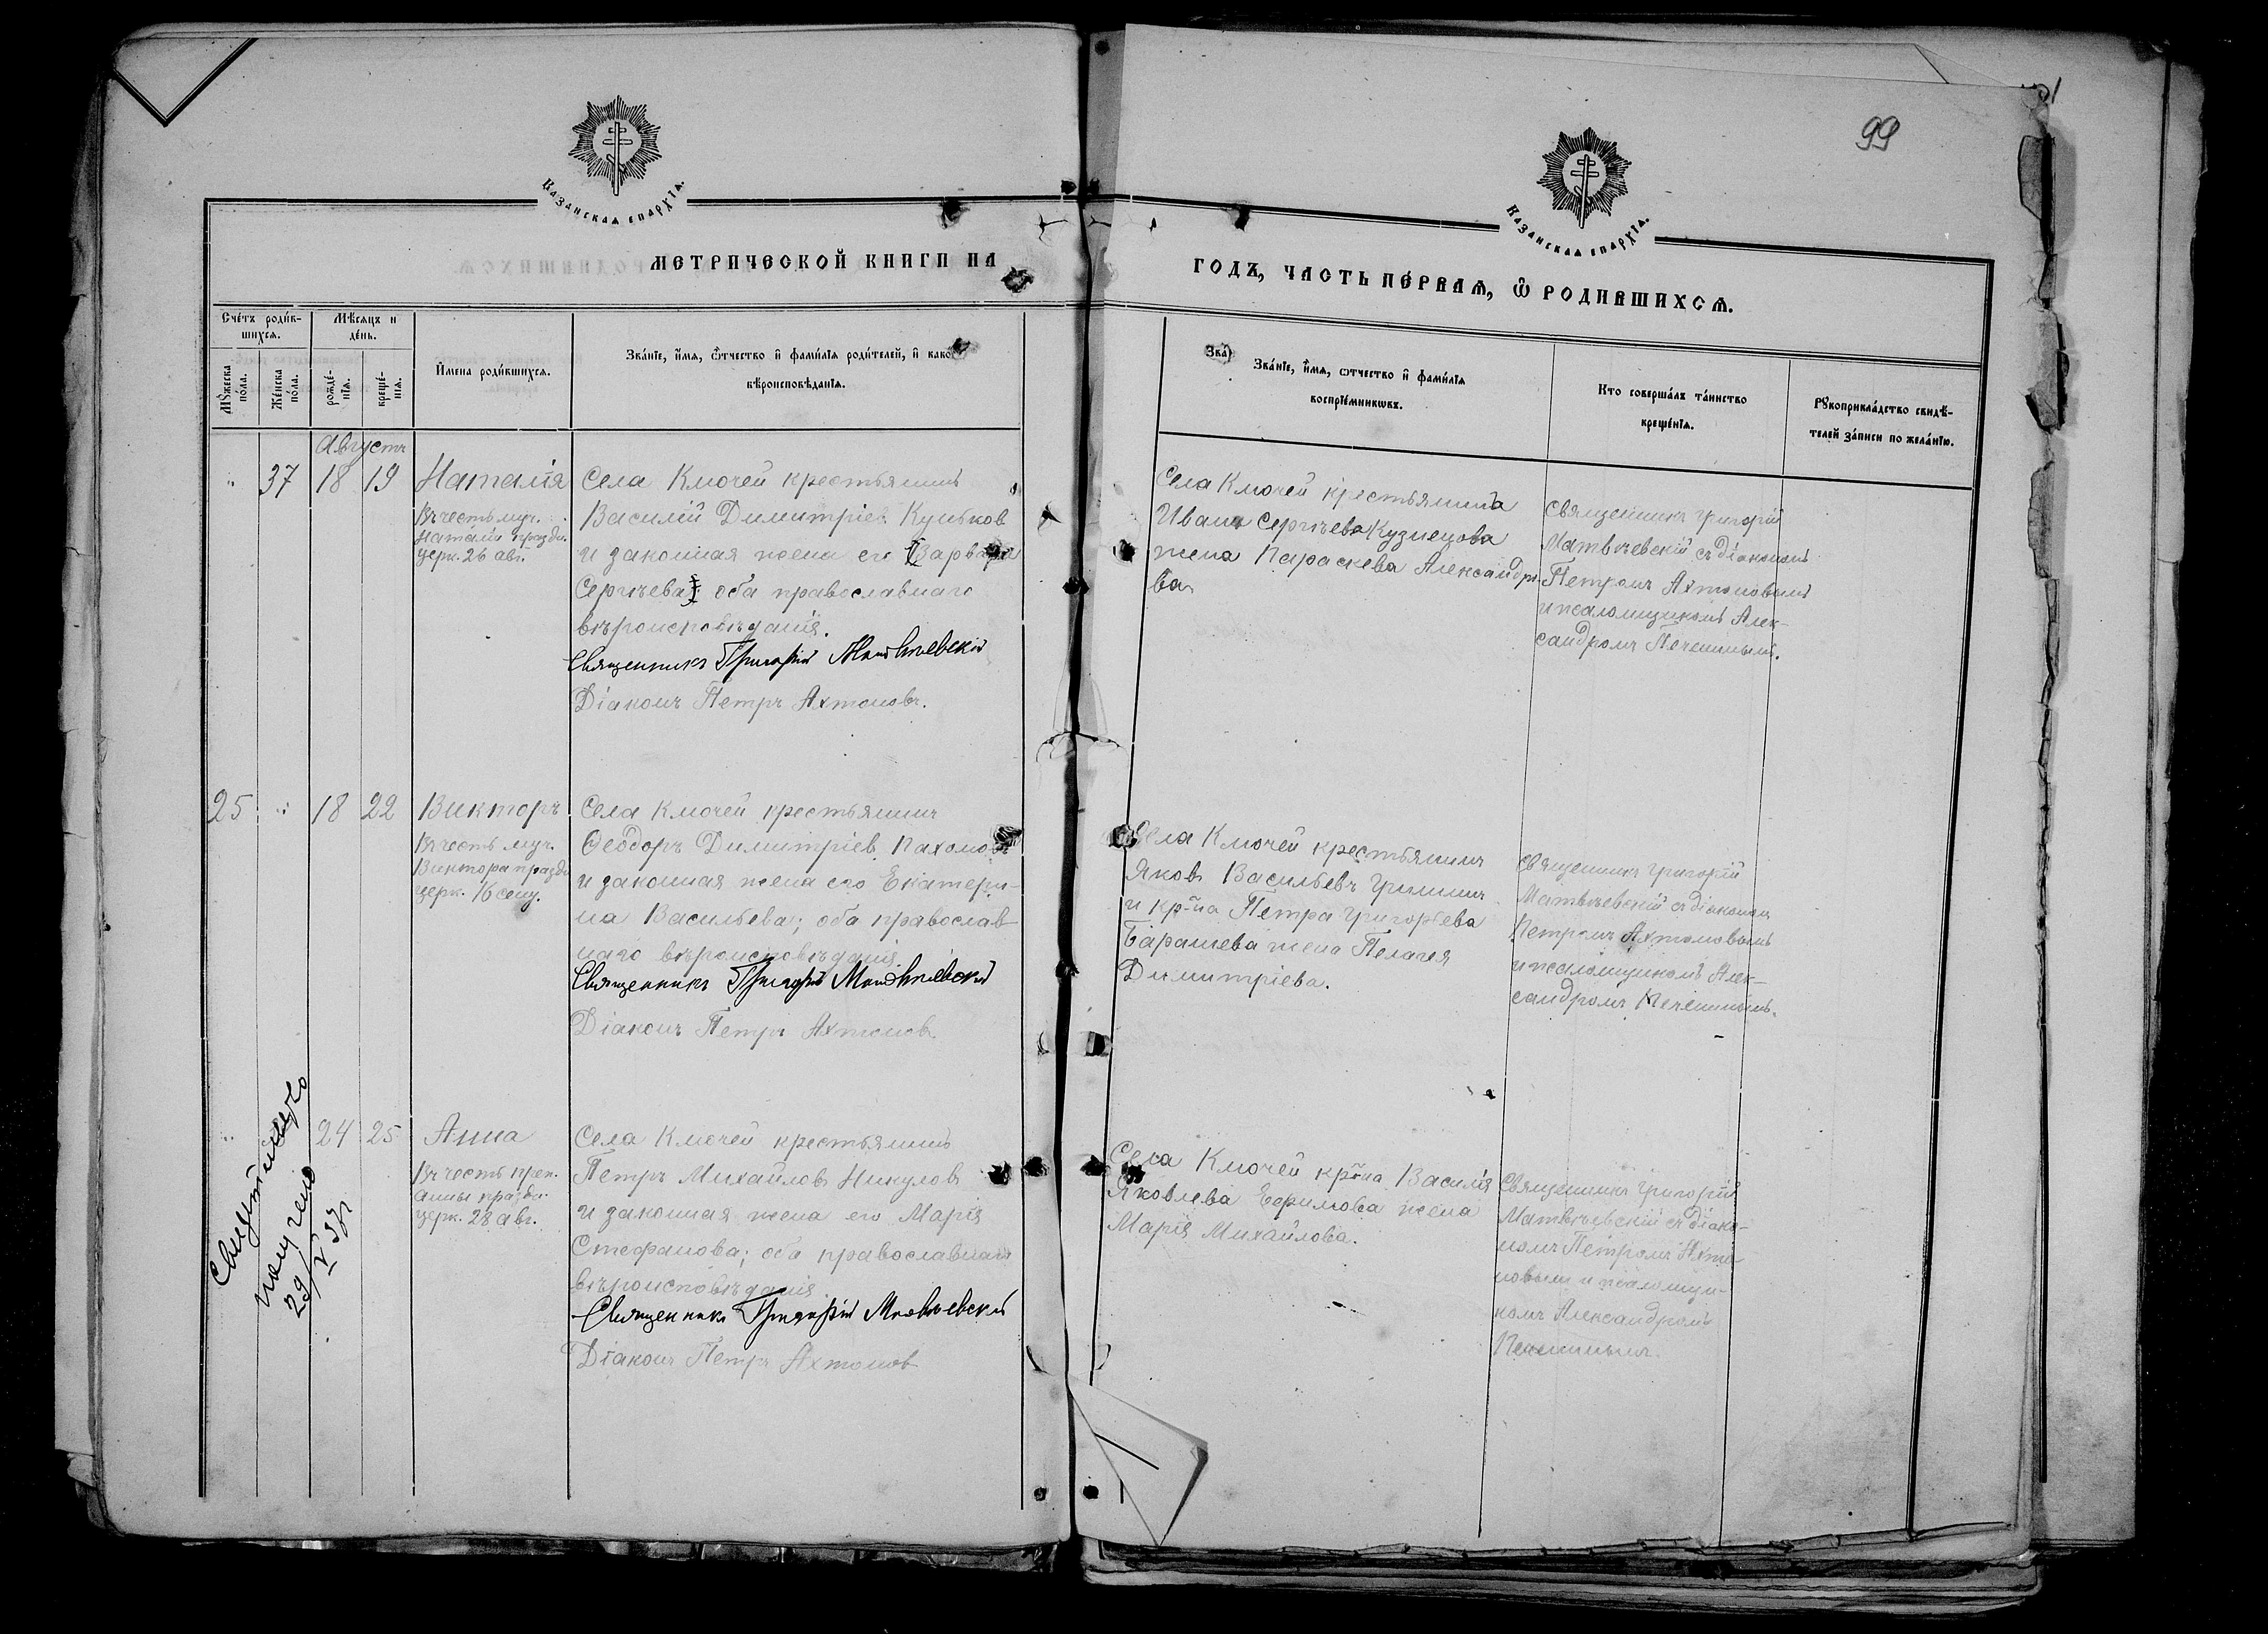 99
Казанская епархїя.
Казанская епархїя.
МЕТРИЧЕСКОЙ КНИГИ НА
ГОДЪ, ЧАСТЬ ПЕРВАЯ, Ѿ РОДИВШИХСЯ.
Сче́тъ роди́в-
шихся.
Мѣ́сяцъ и
де́нь.
Мꙋ́жеска
по́ла.
Же́нска
по́ла.
рожде́-
нїя.
креще́-
нїя.
И́мена роди́вшихся.
Зва́нїе, и́мя, ѻ́тчество и фами́лїя роди́телей, и како
вѣроисповѣ́данїя.
Зва́нїе, и́мя, ѻ́тчество и фами́лїя
воспрїе́мникѡвъ.
Кто соверша́лъ та́инство
креще́нїя.
Рꙋкоприкла́дство свидѣ́-
телей за́писи по жела́нїю.
Августъ
" 37 18 19 Наталія
Въ честь муч.
Наталіи праздн.
церк. 26 авг.
Села Ключей крестьянинъ
Василій Димитріев Кульков
и законная жена его Варвара
Сергѣева; оба православнаго
вѣроисповѣданія.
Священникъ Григорій Матвѣевскій
Діаконъ Петръ Ахтоновъ.
Села Ключей крестьянина
Ивана Сергѣева Кузнецова
жена Параскева Александро-
ва
Священникъ Григорій
Матвѣевскій съ діакономъ
Петромъ Ахтоновымъ
и псаломщикомъ Алек-
сандромъ Печенинымъ.
25 " 18 22 Викторъ
Въ честь муч.
Виктора праздн
церк. 16 сент.
Села Ключей крестьянинъ
Ѳеодоръ Димитріев Пахомовъ
и законная жена его Екатери-
на Васильева; оба православ-
наго вѣроисповѣданія
Священникъ Григорій Матвѣевскій
Діаконъ Петръ Ахтонов
Села Ключей крестьянинъ
Яковъ Васильевъ Гришинъ
и кр-на Петра Григорьева
Барашева жена Пелагея
Димитріева.
Священникъ Григорій
Матвѣевскій съ діакономъ
Петромъ Ахтоновымъ
и псаломщикомъ Алек-
сандромъ Печенинымъ.
" 24 25 Анна
Въ честь преп.
Анны праздн.
церк. 28 авг.
Села Ключей крестьянинъ
Петръ Михайловъ Никуловъ
и законная жена его Марія
Стефанова; оба православнаго
вѣроисповѣданія
Священникъ Григорій Матвѣевскій
Діаконъ Петръ Ахтонов
Села Ключей кр-на Василія
Яковлева Ефимова жена
Марія Михайлова.
Священникъ Григорій
Матвѣевскій съ діако-
номъ Петромъ Ахто-
новым и псаломщи-
комъ Александромъ
Печенинымъ.
получено
29/V 37г